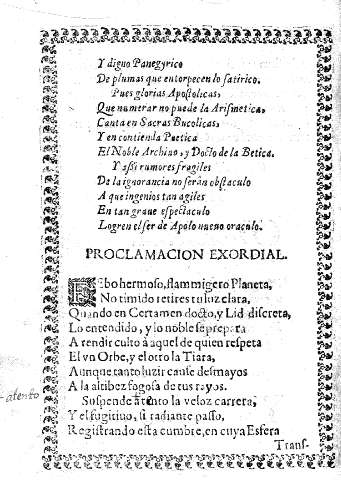 Y digno Panegyrico
De plumas que entorpecen lo satirico.
Pues glorias Apostolicas,
Que numerar no puede la Arismetica,
Canta en Sacras Bucolicas,
Y en contienda Poetica
El Noble Archiuo, y Docto de la Betica.
Y assi rumores fragiles
De la ignorancia no serán obstaculo
A que ingenios tan agiles
En tan graue espectaculo
Logren el ser de Apolo nueuo oraculo.
PROCLAMACION EXORDIAL.
FEbo hermoso, flammigero Planeta,
No timido retires tu luz clara,
Quando en Certamen docto, y Lid discreta,
Lo entendido, y lo noble se prepara
A rendir culto à aquel de quien respeta
El vn Orbe, y el otro la Tiara,
Aunque tanto luzir cause desmayos
A la altibez fogosa de tus rayos.
Suspende atento la veloz carrera,
atento
Y el fugitiuo, si radiante passo,
Registrando esta cumbre, en cuya Esfera
Trans-